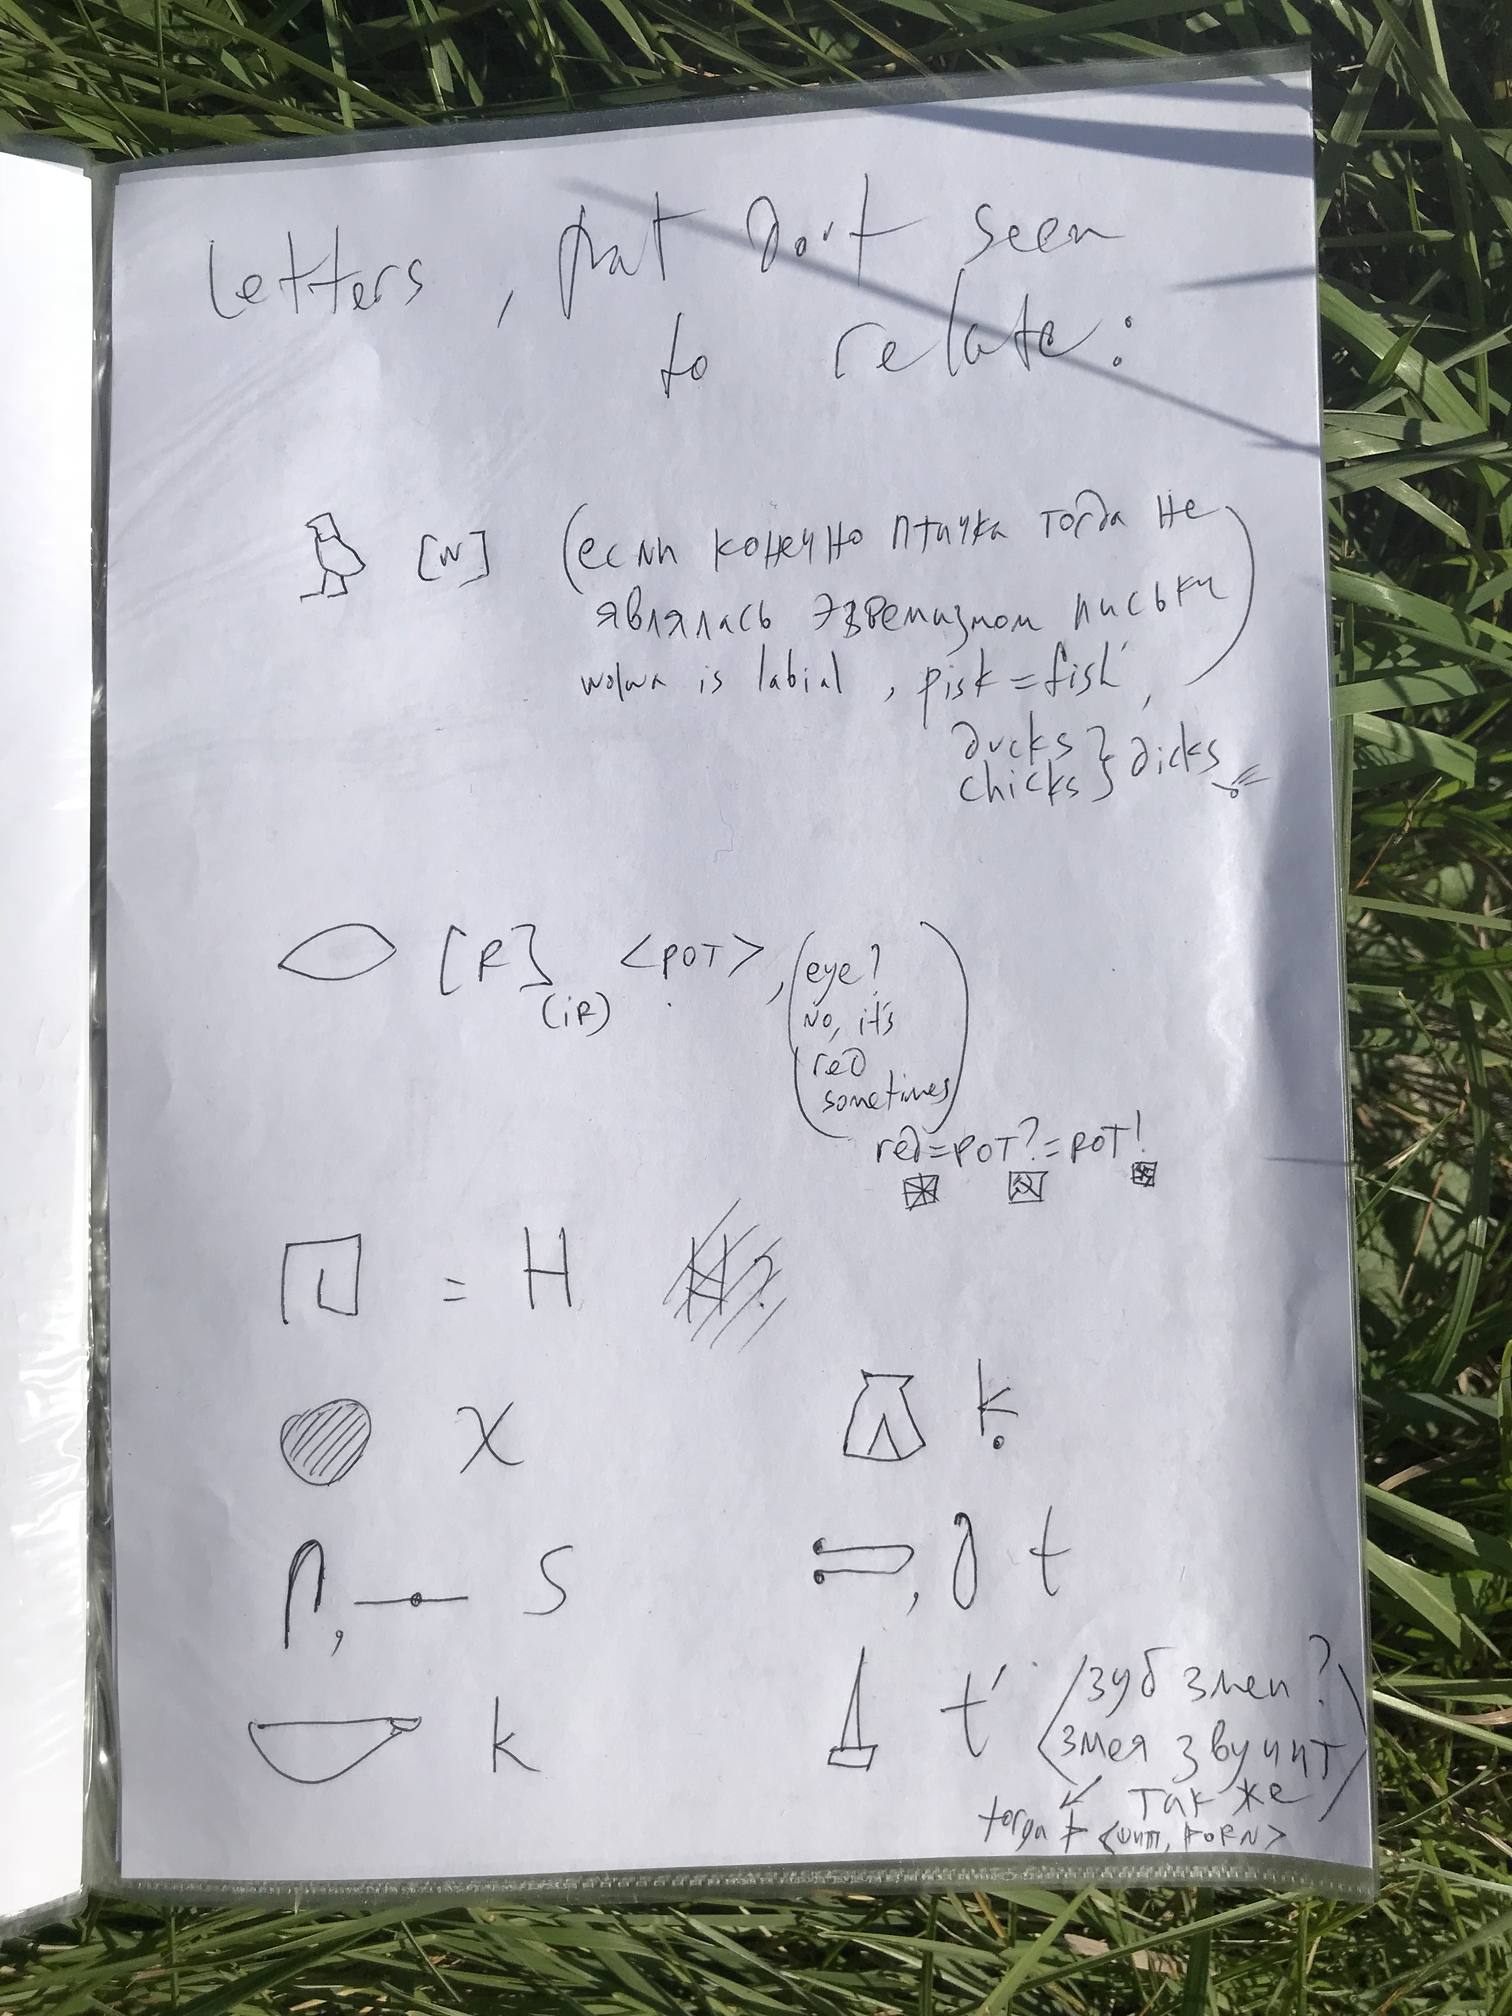 Letters, þat don't seem
to relate:
[w] (если конечно птичка тогда не
являлась эвфемизмом письки
wolwa is labial, pisk = fish,
ducks } dicks
chicks }
[R] <рот>, (eye?
(iR) no, it's
red
sometimes)
red = рот? = ROT!
= H
χ ḳ
, S , t
k t' (зуб змеи?
змея звучит
так же)
torgn Þ <шип, ÞORN>